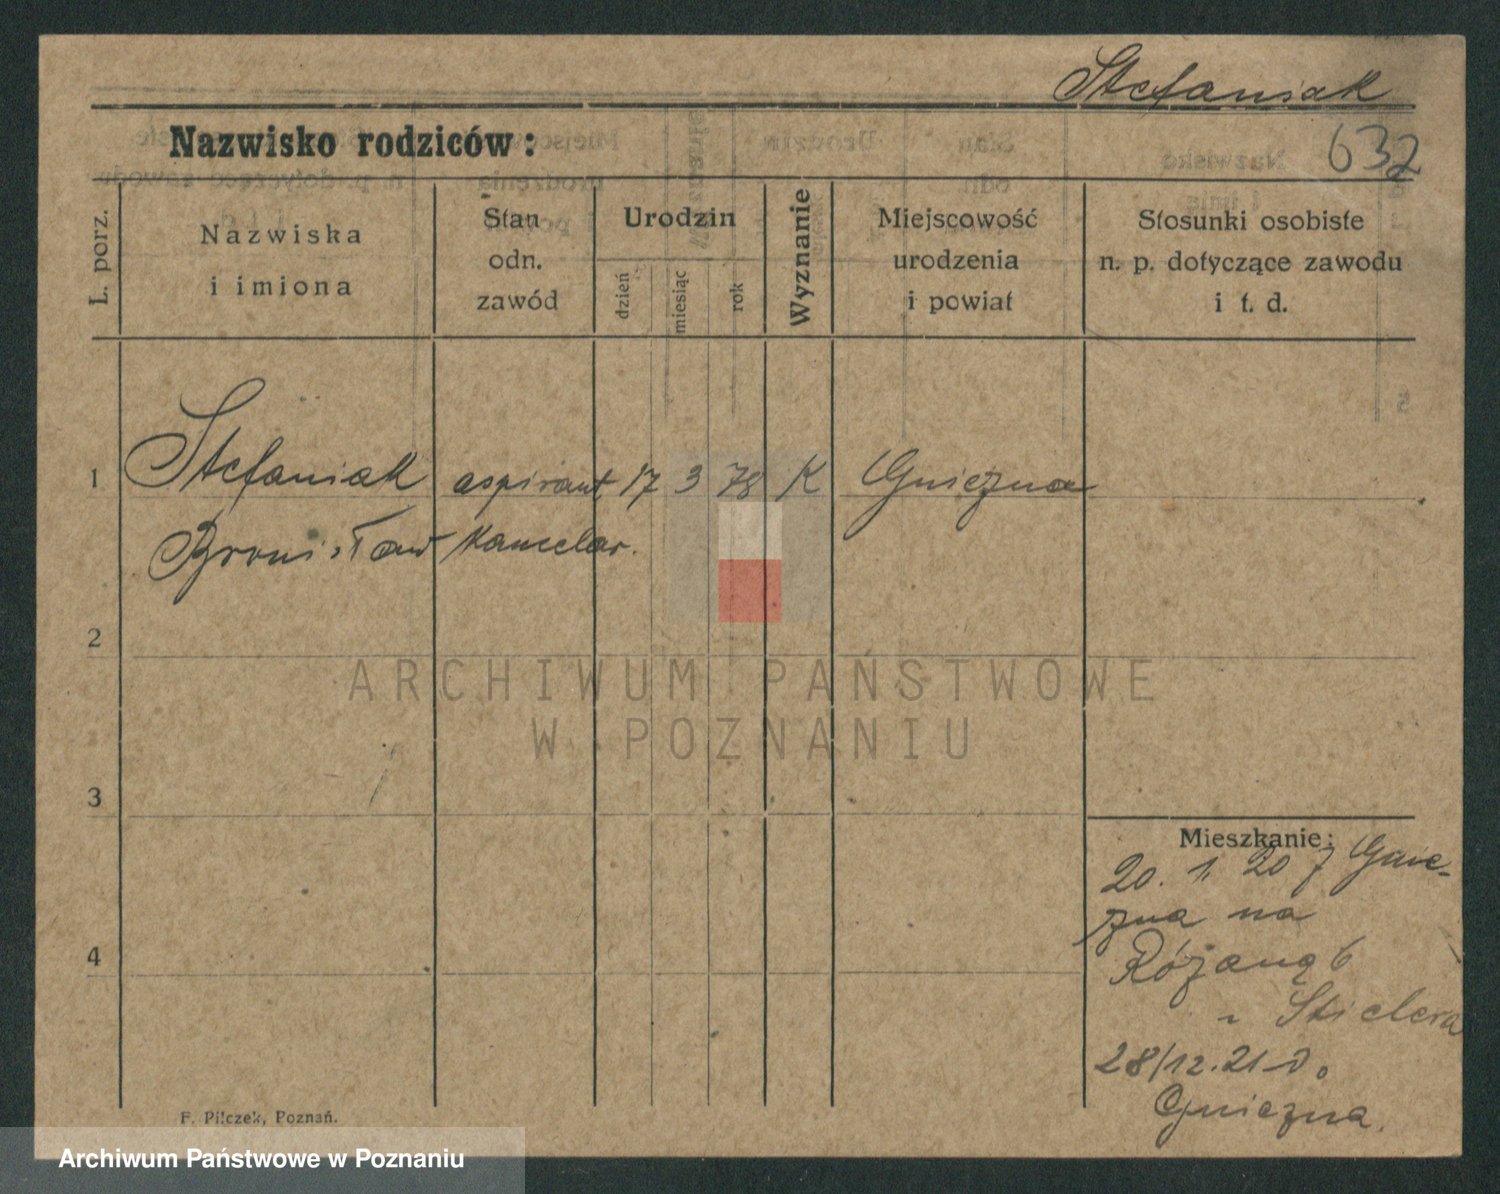 Stefaniak
632
Nazwisko rodziców:
L. porz.
Nazwiska
i imiona
Stan
odn.
zawód
Urodzin
dzień
miesiąc
rok
Wyznanie
Miejscowość
urodzenia
i powiat
Stosunki osobiste
n. p. dotyczące zawodu
i t. d.
1 Stefaniak aspirant 17 3 78 K Gniezna
Bronisław kancelar.
2
3
4
Mieszkanie:
20. 1. 20 z Gnie-
zna na
Różaną 6
Stielera
28/12.21 do
Gniezna.
F. Pilczek, Poznań.
ARCHIWUM PAŃSTWOWE
W POZNANIU
Archiwum Państwowe w Poznaniu